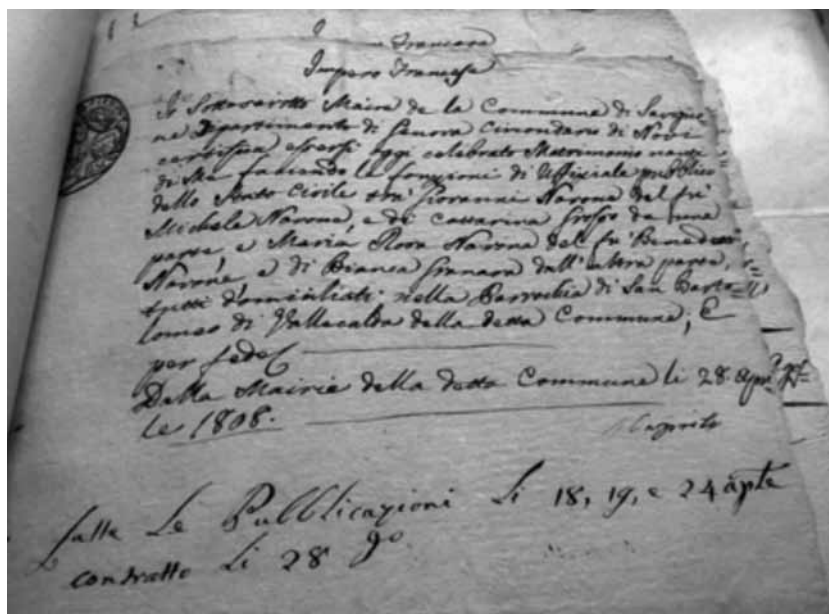 Francese
Impero Francese
Il Sottoscritto Maire de la Commune di Savigno
ne Dipartimento di Genova Circondario di Novi
certifica essersi oggi celebrato Matrimonio nanti
di Me facendo le fonzioni di Uffiziale pubblico
dello Stato Civile tra' Giovanni Navone del fu'
Michele Navone, e di Cattarina Grosso da una
parte, e Maria Rosa Navone del fu' Benedetto
Navone e di Bianca Granara dall'altra parte,
tutti domiciliati nella Parrochia di San Barto=
lomeo di Vallecalda della detta Commune; E
per fede
Dalla Mairie della detta Commune li 28
le 1808.
fatte Le Pubblicazioni Li 18, 19, e 24 aple
contratto Li 28 go